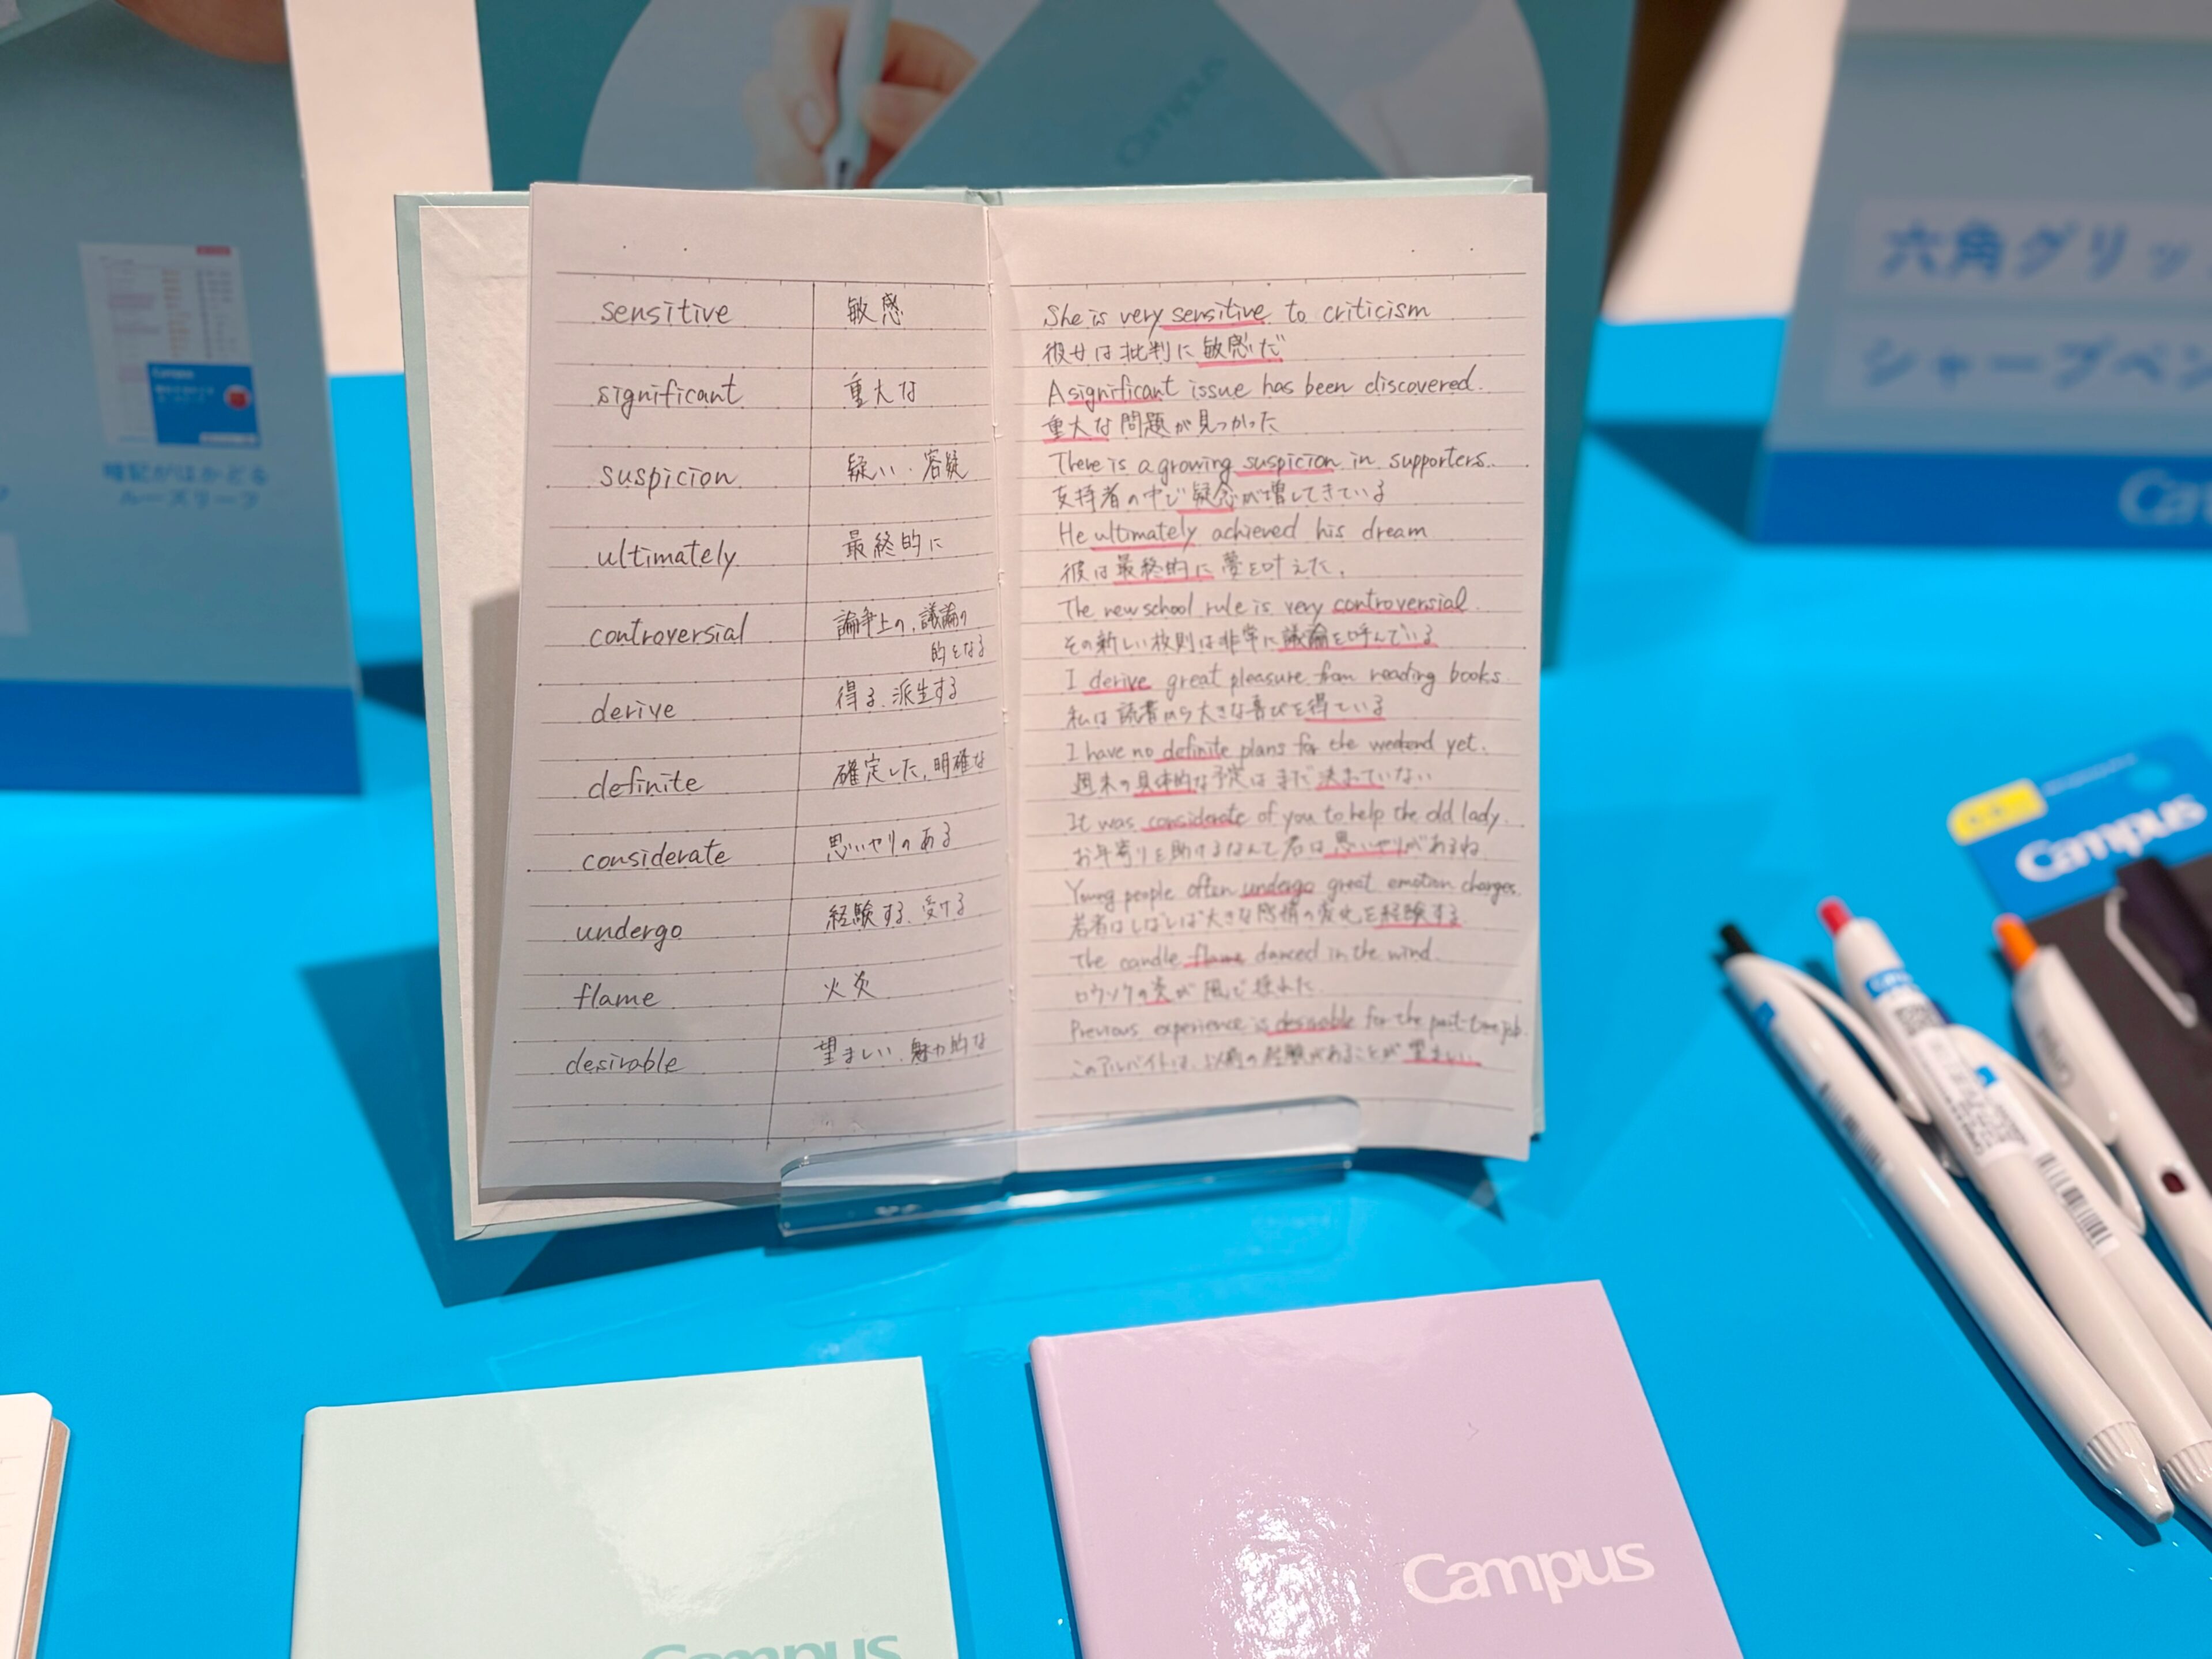 Campus
六角グリッ
シャープペン
暗記がはかどる
ルーズリーフ
sensitive 敏感
significant 重大な
suspicion 疑い・容疑
ultimately 最終的に
controversial 論争上の、議論の
的となる
derive 得る、派生する
definite 確定した、明確な
considerate 思いやりのある
undergo 経験する、受ける
flame 火炎
desirable 望ましい、魅力的な
She is very sensitive to criticism
彼女は批判に敏感だ
A significant issue has been discovered.
重大な問題が見つかった
There is a growing suspicion in supporters.
支持者の中で疑念が増してきている
He ultimately achieved his dream
彼は最終的に夢を叶えた。
The new school rule is very controversial.
その新しい校則は非常に議論を呼んでいる
I derive great pleasure from reading books.
私は読書から大きな喜びを得ている
I have no definite plans for the weekend yet.
週末の具体的な予定はまだ決まっていない
It was considerate of you to help the old lady.
お年寄りを助けるなんて君は思いやりがあるね
Young people often undergo great emotion changes.
若者はしばしば大きな感情の変化を経験する
The candle flame danced in the wind.
ロウソクの炎が風で揺れた
Previous experience is desirable for the part-time job.
このアルバイトは、以前の経験があることが望ましい
Campus
Campus
Campus